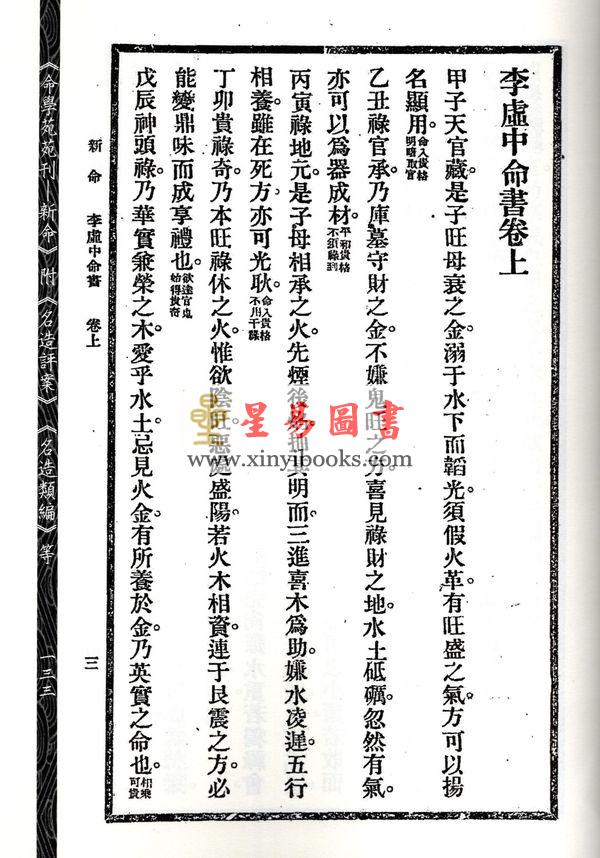 李虛中命書卷上
甲子天官藏。是子旺母衰之金。溺于水下而韜光。須假火革。有旺盛之氣。方可以揚
名顯用。命入貴格
明暗取官
乙丑祿官承。乃庫墓守財之金。不嫌鬼旺之方。喜見祿財之地。水土砥礪。忽然有氣。
亦可以爲器成材。平和貴格
不須祿到
丙寅祿地元。是子母相承之火。先煙後其明而三進。喜木爲助。嫌水凌遲。五行
相養。雖在死方。亦可光耿。命入貴格
不用干祿
丁卯貴祿奇。乃本旺祿休之火。惟欲陰旺。惡處盛陽。若火木相資。連于艮震之方。必
能變鼎味而成享禮也。欲達官鬼
始得拔奇
戊辰神頭祿。乃華實兼榮之木。愛乎水土。忌見火金。有所養於金。乃英實之命也。相乘
可貴
新命 李虛中命書 卷上 三
《命學苑苑刊 新命》附《名造評案》《名造類編》等 一三三
星易圖書
www.xinyibooks.com